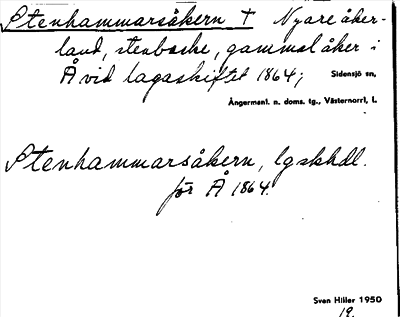 Stenhammarsåkern † Nyare åker-
land, stenbacke, gammal åker i
Å vid lagaskiftet 1864; Sidensjö sn,
Ångermanl. n. doms. tg., Västernorrl, l.
Stenhammarsåkern, lgskhdl.
för Å 1864.
Sven Hiller 1950
19.